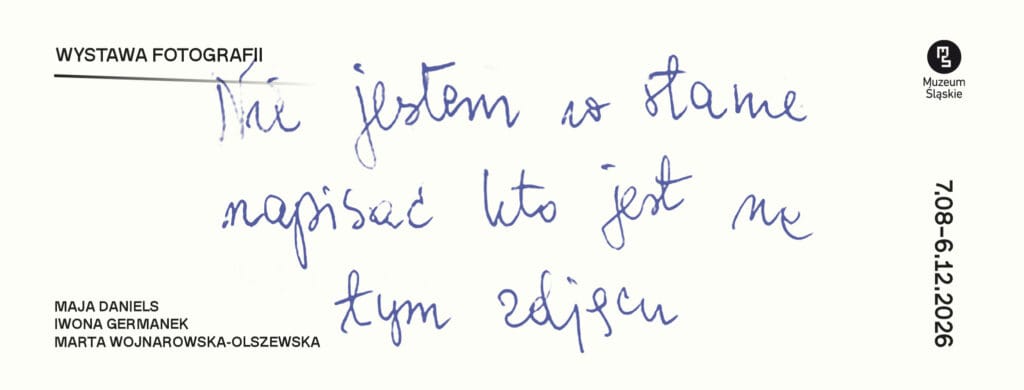 WYSTAWA FOTOGRAFII
Nie jestem w stanie
napisać kto jest na
tym zdjęciu
MAJA DANIELS
IWONA GERMANEK
MARTA WOJNAROWSKA-OLSZEWSKA
MS
Muzeum
Śląskie
7.08–6.12.2026